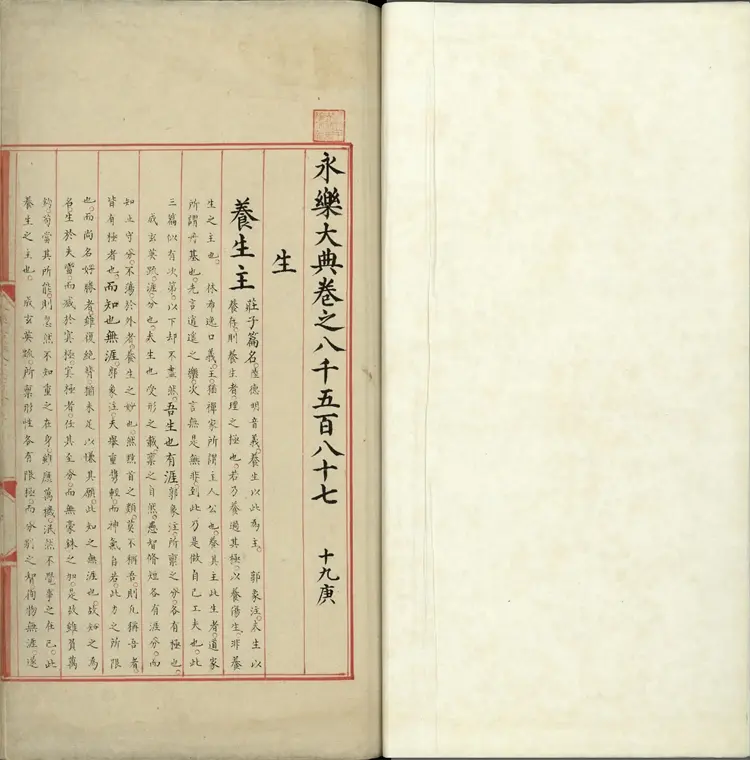 永樂大典卷之八千五百八十七　十九庚
生
養生主
莊子篇名。陸德明音義。養生以此為主。郭象注。夫生以
養存。則養生者。理之極也。若乃養過其極。以養傷生。非養
生之主也。林希逸口義。主。猶禪家所謂主人公也。養其主此生者。道家
所謂丹基也。先言逍遙之樂。次言無是無非。到此乃是做自己工夫也。此
三篇似有次第。以下却不盡然。吾生也有涯。郭象注。所稟之分。各有極也。
成玄英疏。涯。分也。夫生也受形之載。稟之自然。愚智脩短。各有涯分。而
知止守分。不蕩於外者。養生之妙也。然黔首之類。莫不稱吾。則凡稱吾者。
皆有極者也。而知也無涯。郭象注。夫舉重攜輕。而神氣自若。此力之所限
也。而尚名好勝者。雖復絕膂。猶未足以慊其願。此知之無涯也。故知之為
名。生於失當。而滅於冥極。冥極者。任其至分。而無毫銖之加。是故雖負萬
鈞。苟當其所能。則忽然不知重之在身。雖應萬機。泯然不覺事之在己。此
養生之主也。成玄英疏。所稟形性。各有限極。而分別之智。徇物無涯。遂